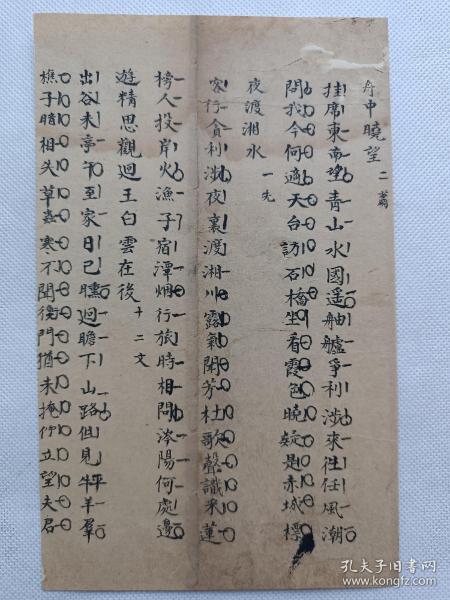 舟中曉望 二蕭
挂席東南望青山水國遥舳艫爭利涉來往任風潮
問我今何適天台訪石橋坐看霞色曉疑是赤城標
夜渡湘水 一先
客行貪利涉夜裏渡湘川露氣聞芳杜歌聲識采蓮
榜人投岸火漁子宿潭烟行旅時相問涔陽何處邊
遊精思觀迴王白雲在後 十二文
出谷未亭午至家日已曛迴瞻下山路但見牛羊羣
樵子暗相失草蟲寒不聞衡門猶未掩佇立望夫君
孔夫子旧书网
www.kongfz.com